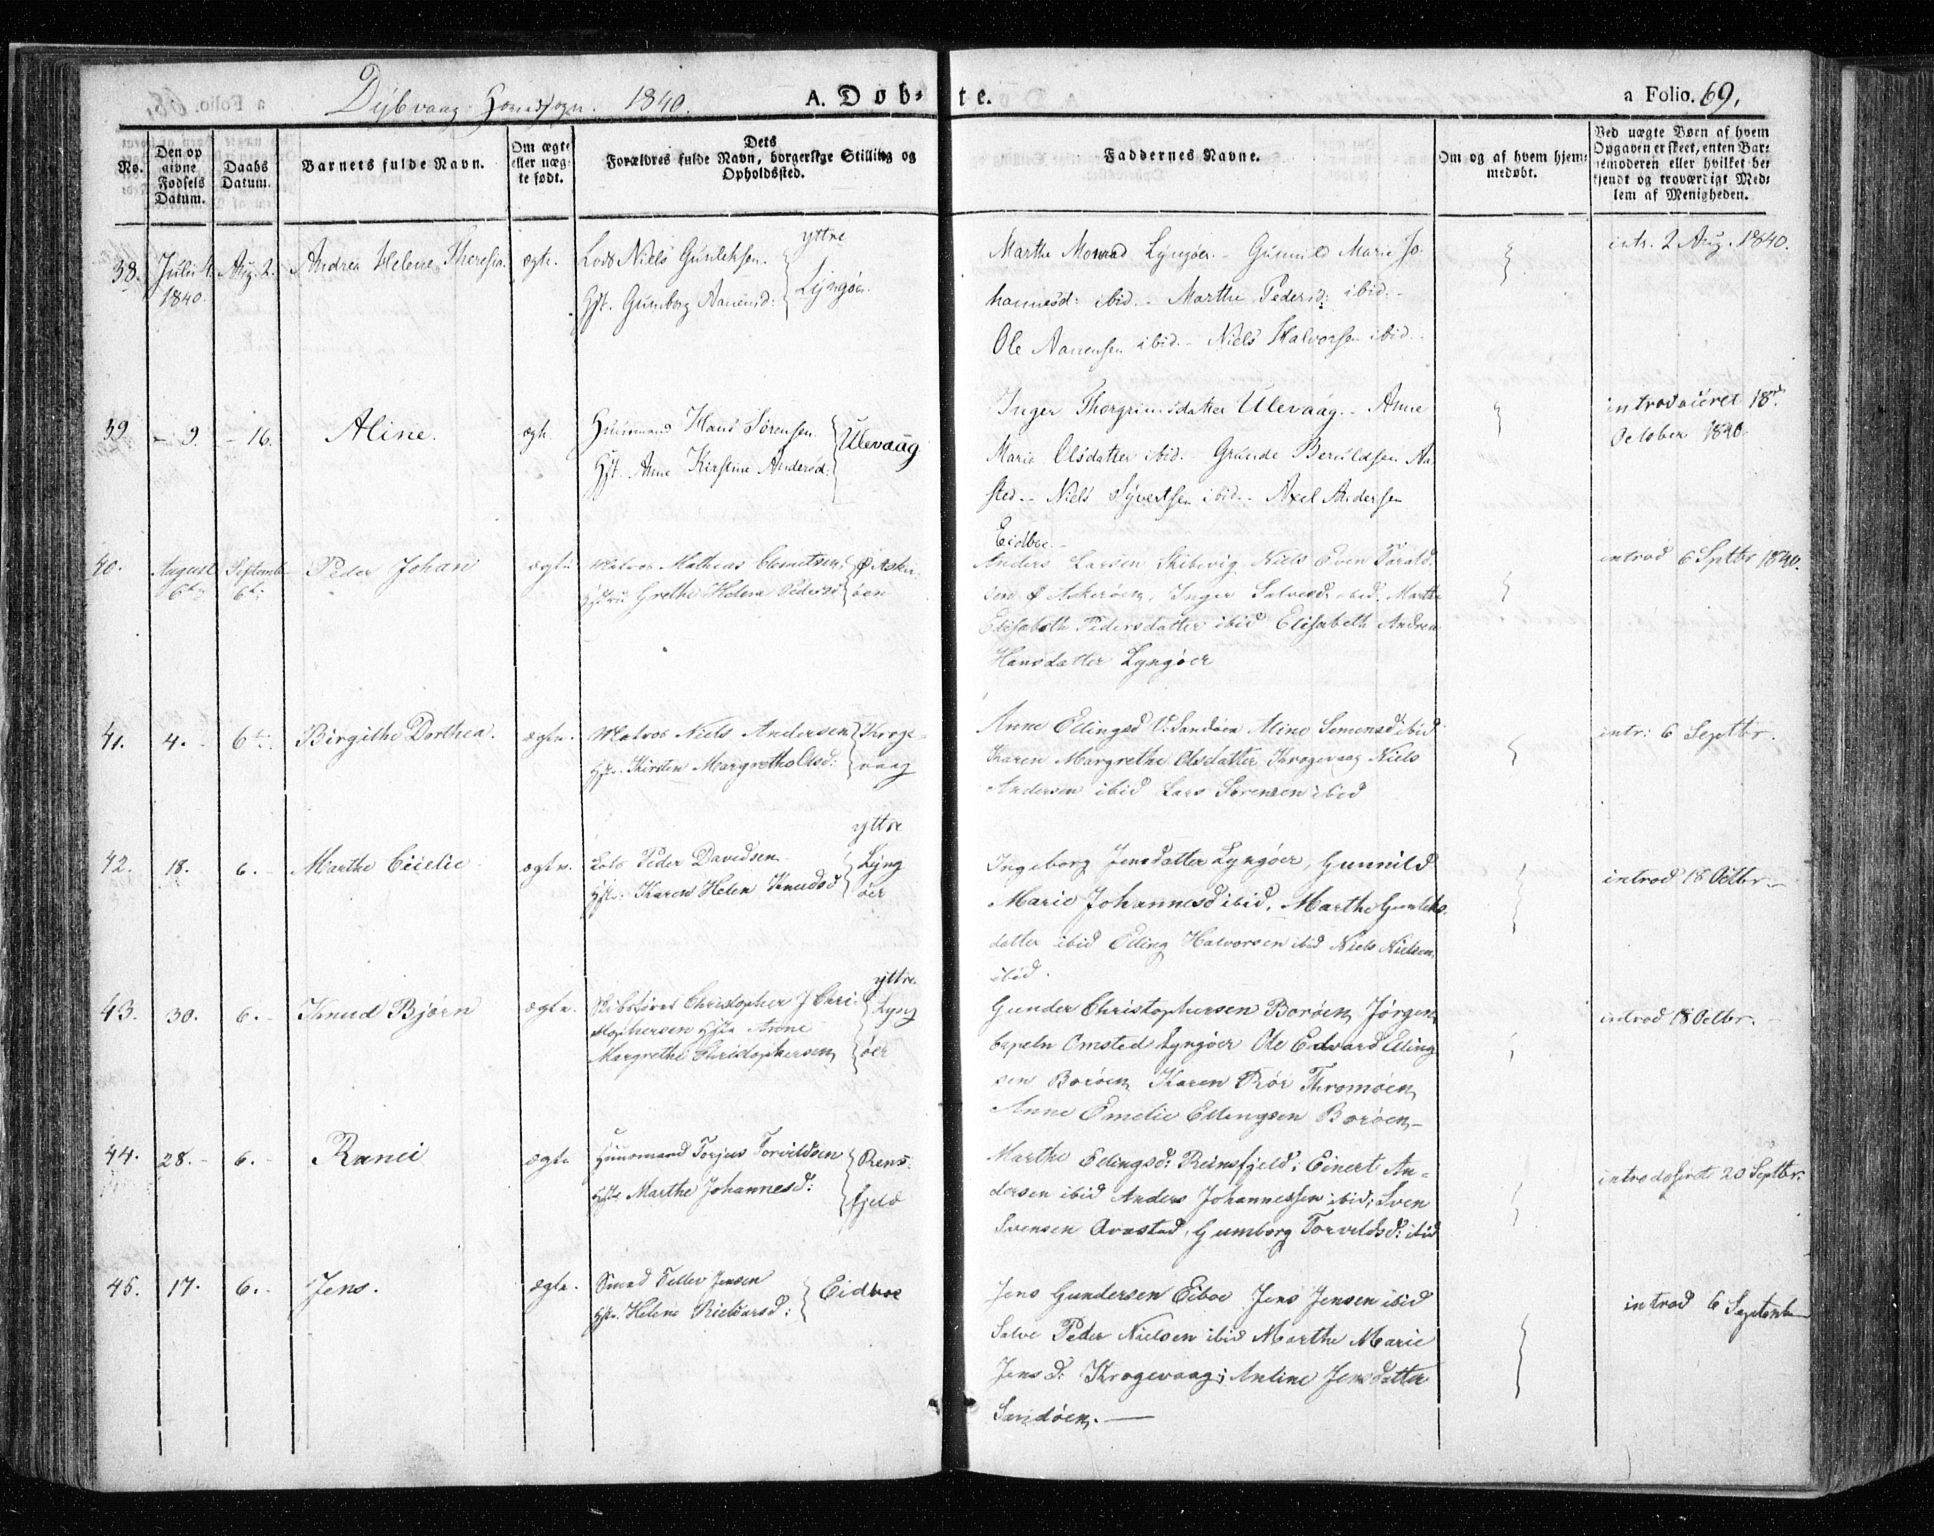 Dybvaag Hovedsogn. 1840.
A. Døbte.
a Folio. 69.
No.
Den op
givne
Fødsels
Datum.
Daabs
Datum.
Barnets fulde Navn.
Om ægte
eller uæg-
te født.
Dets
Forældres fulde Navn, borgerlige Stilling og
Opholdssted.
Faddernes Navne.
Om og af hvem hjem-
medøbt.
Ved uægte Børn af hvem
Opgaven er skeet, enten Bar-
nemoderen eller hvilket be-
kjendt og troværdigt Med-
lem af Menigheden.
38. Juli 4. Aug. 2. Andrea Helene Theresia. ægte.
1840.
Lods Niels Gunleksen.
Hst. Gunborg Aanensd:
yttre
Lyngøer.
Marthe Monrad Lyngøer. - Gunnild Marie Jo-
hannesd: ibid. - Marthe Pedersd: ibid. -
Ole Aanensen ibid. - Niels Halvorsen ibid. -
intr. 2 Aug. 1840.
39. - 9. - 16. Aline. ægte.
Huusmand Hans Sørensen.
Hst. Anne Kirstine Andersd:
Ulevaag
Inger Thorgrimsdatter Ulevaag. - Anne
Marie Olsdatter ibid. - Grunde Beruldsen Aa-
sted. - Niels Syvertsen ibid. - Axel Andersen
Eidboe. -
introduceret 18de
October 1840.
40. August September Peder Johan ægte
6te 6te
Matros Mathias Clemetsen,
Hstru Grethe Helene Pedersd
Ø Asker-
øen
Anders Larsen Skibevig, Niels Even Torald-
sen Ø Askerøen, Inger Salvesd: ibid, Marthe
Elisabeth Pedersdatter ibid Elisabeth Andrea
Hansdatter Lyngøer
introd 6 Septbr 1840.
41. 4. 6te Birgithe Dorthea. ægte.
Matros Niels Andersen
Hst. Kirsten Margrethe Olsd:
Kroge-
vaag
Anne Edingsd V: Sandøen Aline Simensd ibid
Karen Margrethe Olsdatter Krogevaag Niels
Andersen ibid Lars Sørensen ibid
intr: 6 Septbr.
42. 18. 6. Marthe Cicelie ægte.
Lods Peder Davidsen
Hst. Karen Helen Knudsd
yttre
Lyng
øer
Ingeborg Jensdatter Lyngøer, Gunnild
Marie Johannesd ibid. Marthe Gunleks-
datter ibid Eding Halvorsen ibid Niels Nielsen
ibid.
introd 18 Octbr. -
43. 30. 6. Knud Bjørn ægte.
Skibsfører Christopher J Chri-
stophersen Hst. Anne
Margrethe Christophersen
yttre
Lyng
øer
Gunder Christophersen Borøen, Jørgen
Capeln Omsted Lyngøer Ole Edvard Eding-
sen Borøen, Karen Rør Thromøen,
Anne Emelie Edingsen Borøen, -
introd 18 Octbr. -
44. 28. - 6. - Ranei ægte
Huusmand Torjus Torvildsen
Hst. Marthe Johannesd:
Rens-
fjeld
Marthe Edingsd: Reinsfjeld; Einert An-
dersen ibid Anders Johannessen ibid; Sven
Svensen Avastad, Gumborg Torvildsd: ibid
20 Septbr.
45. 17. 6. - Jens. ægte.
Smed Tellev Jensen
Hst. Helene Richarsd:
Eidboe
Jens Gundersen Eiboe Jens Jensen ibid
Salve Peder Nielsen ibid Marthe Marie
Jens D: Krogevaag; Antine Jensdatter
Sandøen. -
introd 6 September